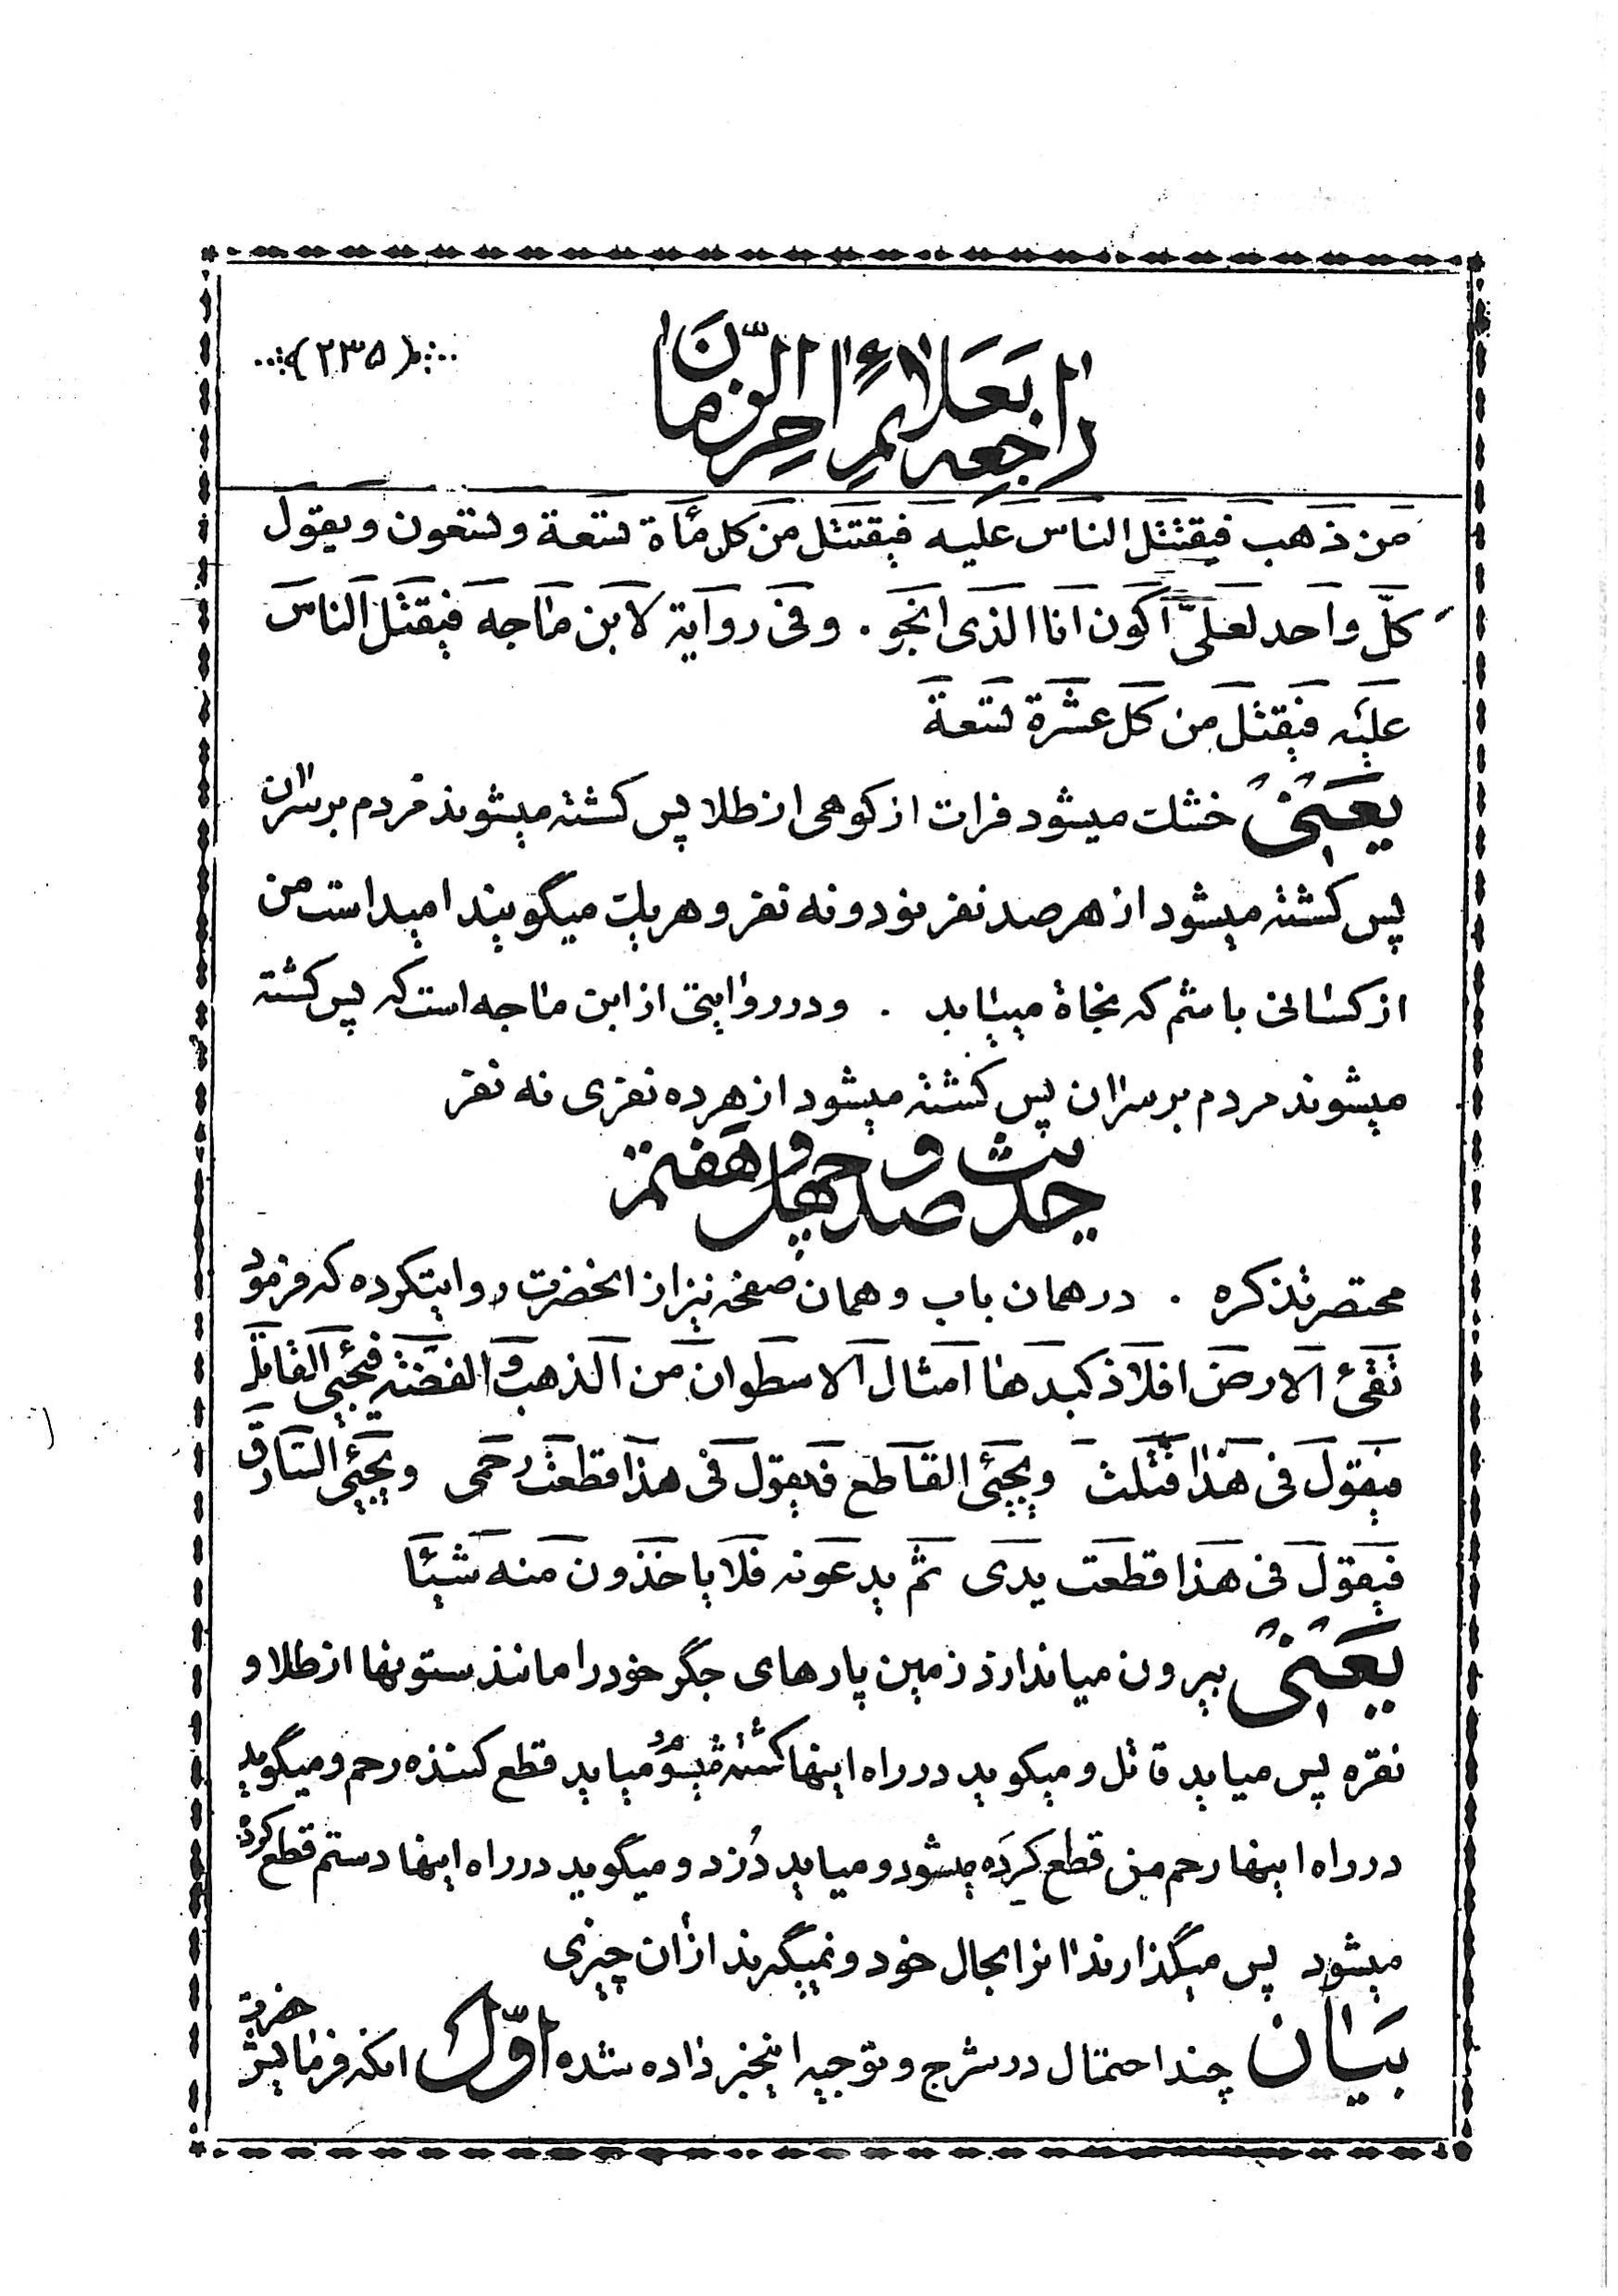 (۲۳۵)
راجعه بعلائم اخر الزمان
من ذهب فيقتتل الناس عليه فيقتتل من كل مأة تسعة وتسعون ويقول
كلّ واحد لعلّى اكون انا الذى انجو . وفى رواية لابن ماجه فيقتتل الناس
عليه فيقتل من كل عشرة تسعة
يعنى خشك ميشود فرات از كوهى از طلا پس كشته ميشوند مردم بر سر ان
پس كشته ميشود از هر صد نفر نود و نه نفر و هر يك ميگويند اميد است من
از كسانى باشم كه نجاة مييابد . و در روايتى از ابن ماجه است كه پس كشته
ميشوند مردم بر سر ان پس كشته ميشود از هر ده نفرى نه نفر
حديث صد و چهل و هفتم
مختصر تذكره . در همان باب و همان صفحه نيز از انحضرت روايتكرده كه فرمود
تقئ الارض افلاذ كبدها امثال الاسطوان من الذهب والفضة فيجيئ القاتل
فيقول فى هذا قتلت ويجيئ القاطع فيقول فى هذا قطعت رحمى ويجيئ السارق
فيقول فى هذا قطعت يدى ثم يدعونه فلا ياخذون منه شيئا
يعنى بيرون مياندازد زمين پارهاى جگر خود را مانند ستونها از طلا و
نقره پس ميايد قاتل و ميكويد در راه اينها كشته ميشود و ميايد قطع كننده رحم و ميگويد
در راه اينها رحم من قطع كرده ميشود و ميايد دُزد و ميگويد در راه اينها دستم قطع كرده
ميشود پس ميگذارند انرا بحال خود و نميگيرند از ان چيزى
بيان چند احتمال در شرح و توجيه اينخبر داده شده اوّل انكه فرمايش حضرت